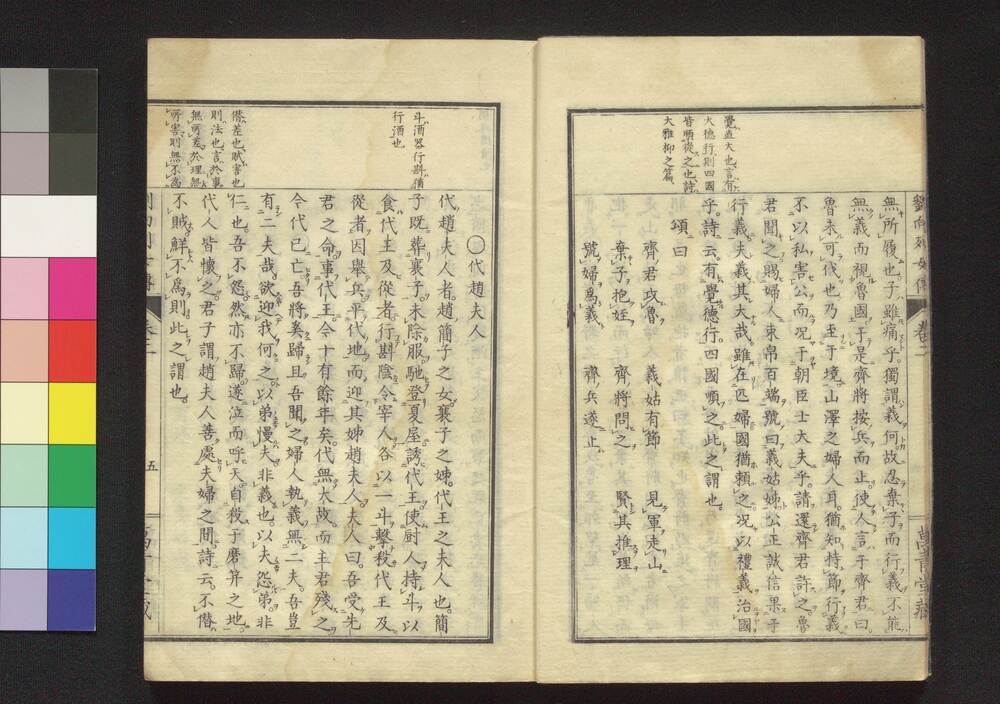 劉向列女傳 卷
覺直大也言有
大德行則四國
皆順從之也詩
大雅抑之篇
無所履也子雖痛乎獨謂義何故忍棄子而行義不能
無義而視魯國于是齊將按兵而止使人言于齊君曰
魯未可伐也乃至于境山澤之婦人耳猶知持節行義
不以私害公而況于朝臣士大夫乎請還齊君許之魯
君聞之賜婦人束帛百端號曰義姑姊公正誠信果于
行義夫義其大哉雖在匹婦國猶賴之况以禮義治國
乎詩云有覺德行四國順之此之謂也
頌曰
齊君攻魯 義姑有節 見軍走山
棄子抱姪 齊將問之 賢其推理
號婦爲義 齊兵遂止
斗酒器行斟猶
行酒也
僭差也賊害也
則法也言於事
無所差於理無
所害則無不爲
〇代趙夫人
代趙夫人者趙簡子之女襄子之姊代王之夫人也簡
子既葬襄子未除服馳登夏屋誘代王使厨人持斗以
食代王及從者行斟陰令宰人各以一斗擊殺代王及
從者因舉兵平代地而迎其姊趙夫人夫人曰吾受先
君之命事代王今十有餘年矣代無大故而主君殘之
今代已亡吾將奚歸且吾聞之婦人執義無二夫吾豈
有二夫哉欲迎我何之以弟慢夫非義也以夫怨弟非
仁也吾不怨然亦不歸遂泣而呼天自殺于磨笄之地
代人皆懷之君子謂趙夫人善處夫婦之間詩云不僭
不賊鮮不爲則此之謂也
五